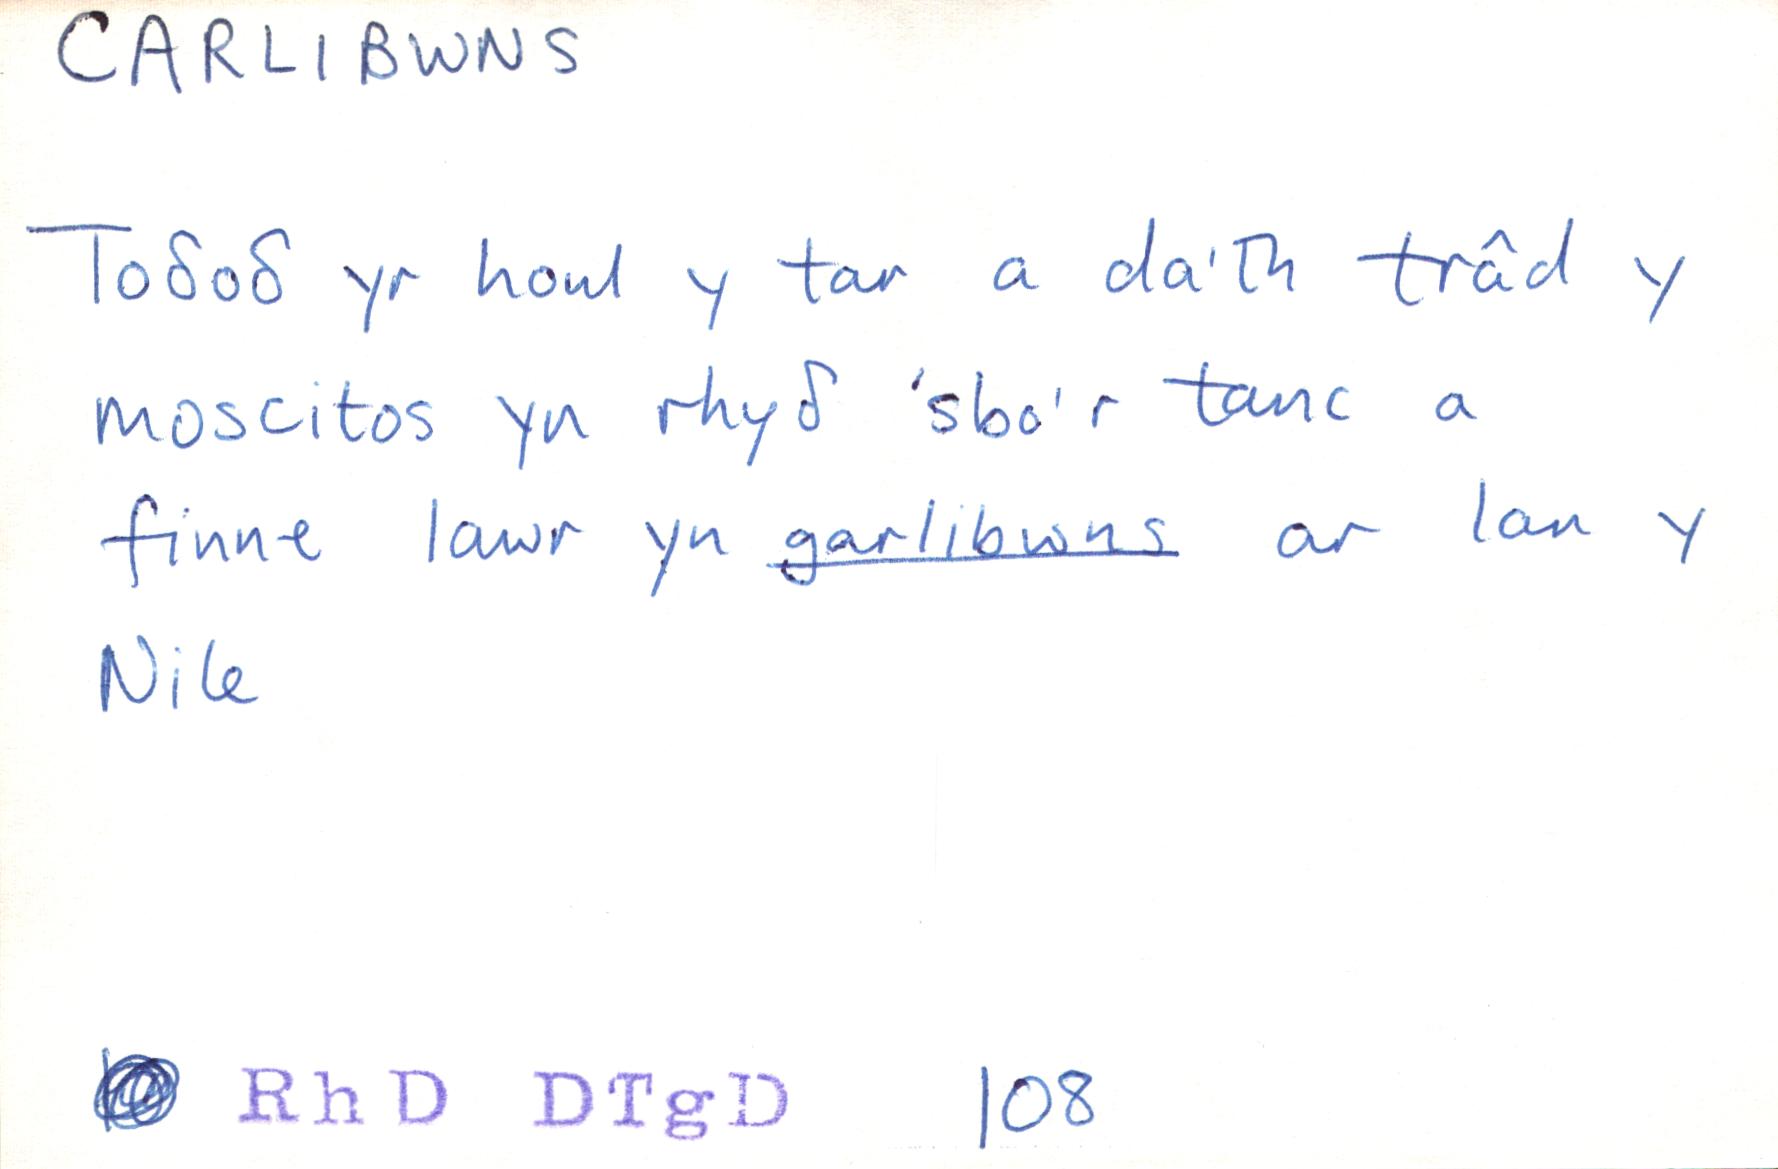 CARLIBWNS
Toδoδ yr houl y tar a da'th trâd y
moscitos yn rhyδ 'sbo'r tanc a
finne lawr yn garlibwns ar lan y
Nile
RhD DTgD 108